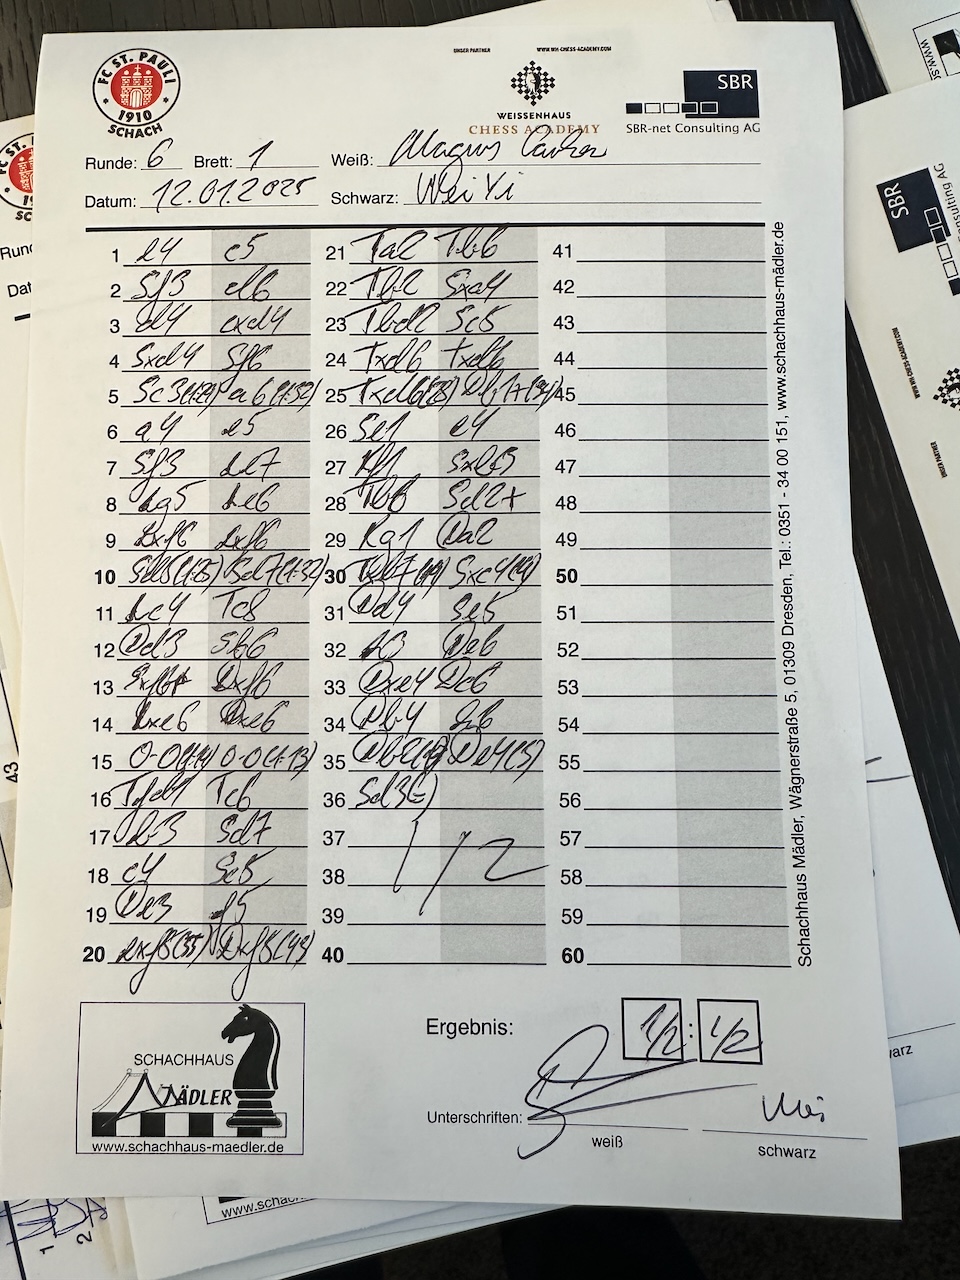 FC ST. PAULI
1910
SCHACH
UNSER PARTNER
WWW.WH-CHESS-ACADEMY.COM
WEISSENHAUS
CHESS ACADEMY
SBR
SBR-net Consulting AG
Runde: 6 Brett: 1 Weiß: Magnus Carlsen
Datum: 12.01.2025 Schwarz: Wei Yi
1 e4 c5 21 Ta2 Tb6 41
2 Sf3 d6 22 Tb2 Sxa4 42
3 d4 cxd4 23 Tbd2 Sc5 43
4 Sxd4 Sf6 24 Txd6 Txd6 44
5 Sc3 a6 (1:32) 25 Txd6 Db1+ 45
6 a4 e5 26 Se1 e4 46
7 Sf3 Le7 27 Kf1 Sxb3 47
8 Lg5 Le6 28 Tb6 Sd2+ 48
9 Lxf6 Lxf6 29 Kg1 Da2 49
10 Sd5 Sd7 (1:32) 30 Txb7 Sxc4 50
11 Lc4 Tc8 31 Dd4 Se5 51
12 Dd3 Sb6 32 h3 De6 52
13 Sxf6+ Dxf6 33 Dxe4 Dc6 53
14 Lxe6 Dxe6 34 Db4 g6 54
15 0-0 0-0 (1:13) 35 Db2 De4 (5) 55
16 Tfd1 Tc6 36 Sd3 (=) 56
17 b3 Sd7 37 1/2 57
18 c4 Sc5 38 58
19 De3 f5 39 59
20 exf5 (55) Dxf5 (49) 40 60
Schachhaus Mädler, Wägnerstraße 5, 01309 Dresden, Tel.: 0351 - 34 00 151, www.schachhaus-mädler.de
Ergebnis: 1/2 : 1/2
SCHACHHAUS
MÄDLER
www.schachhaus-maedler.de
Unterschriften: Wei
weiß
schwarz
SBR
43